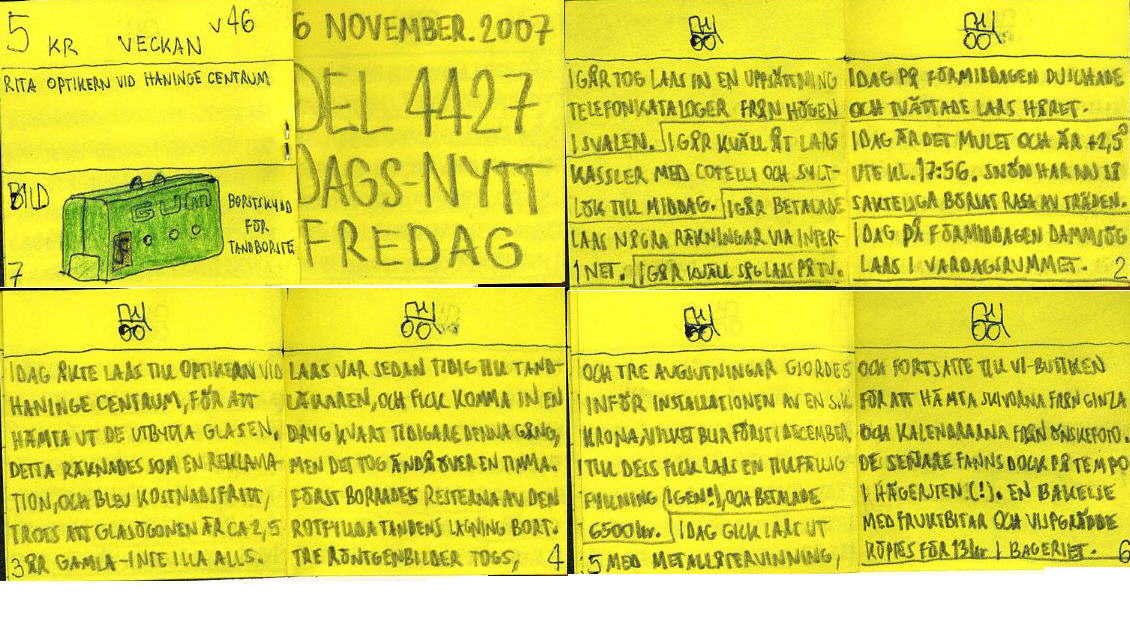 5 KR VECKAN v46
RITA OPTIKERN VID HANINGE CENTRUM
BILD
GUM
BORSTSKYDD
FÖR
TANDBORSTE
7
6 NOVEMBER.2007
DEL 4427
DAGS-NYTT
FREDAG
IGÅR TOG LARS IN EN UPPSÄTTNING
TELEFONKATALOGER FRÅN HÖGEN
I SVALEN. IGÅR KVÄLL ÅT LARS
KASSLER MED COTELLI OCH SYLT-
LÖK TILL MIDDAG. IGÅR BETALADE
LARS NÅGRA RÄKNINGAR VIA INTER-
NET. IGÅR KVÄLL SÅG LARS PÅ TV.
1
IDAG PÅ FÖRMIDDAGEN DUSCHADE
OCH TVÄTTADE LARS HÅRET.
IDAG ÄR DET MULET OCH ÄR +2,5°
UTE KL. 17:56. SNÖN HAR NU SÅ
SAKTELIGA BÖRJAT RASA AV TRÄDEN.
IDAG PÅ FÖRMIDDAGEN DAMMSÖG
LARS I VARDAGSRUMMET. 2
IDAG ÅKTE LARS TILL OPTIKERN VID
HANINGE CENTRUM, FÖR ATT
HÄMTA UT DE UTBYTTA GLASEN.
DETTA RÄKNADES SOM EN REKLAMA-
TION, OCH BLEV KOSTNADSFRITT,
TROTS ATT GLASÖGONEN ÄR CA 2,5
3 ÅR GAMLA-INTE ILLA ALLS.
LARS VAR SEDAN TIDIG TILL TAND-
LÄKAREN, OCH FICK KOMMA IN EN
DRYG KVART TIDIGARE DENNA GÅNG,
MEN DET TOG ÄNDÅ ÖVER EN TIMMA.
FÖRST BORRADES RESTERNA AV DEN
ROTFYLLDA TANDENS LAGNING BORT.
TRE RÖNTGENBILDER TOGS, 4
OCH TRE AVGJUTNINGAR GJORDES
INFÖR INSTALLATIONEN AV EN S.K
KRONA, VILKET BLIR FÖRST I DECEMBER.
TILL DESS FICK LARS EN TILLFÄLLIG
FYLLNING (IGEN!), OCH BETALADE
6500 kr. IDAG GICK LARS UT
5 MED METALLÅTERVINNING,
OCH FORTSATTE TILL VI-BUTIKEN
FÖR ATT HÄMTA SKIVORNA FRÅN GINZA
OCH KALENDRARNA FRÅN ÖNSKEFOTO.
DE SENARE FANNS DOCK PÅ TEMPO
I HÄGERSTEN (!). EN BAKELSE
MED FRUKTBITAR OCH VISPGRÄDDE
KÖPTES FÖR 13 kr I BAGERIET. 6